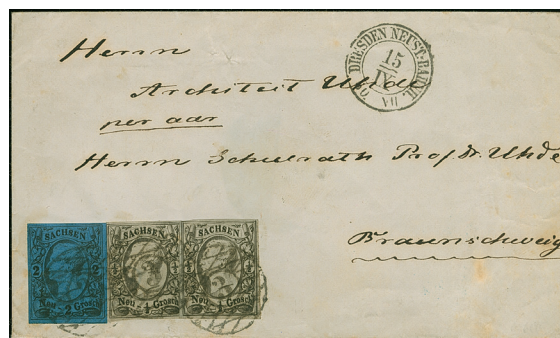 Herrn
DRESDEN NEUST-BAHNH.
15
IX
VII
Architect Uhde
per adr
Herrn Schulrath Prof. Dr. Uhde
Braunschweig
SACHSEN
2 2
Neu 2 Grosch
SACHSEN
Neu 1 Grosch
SACHSEN
Neu 1 Grosch